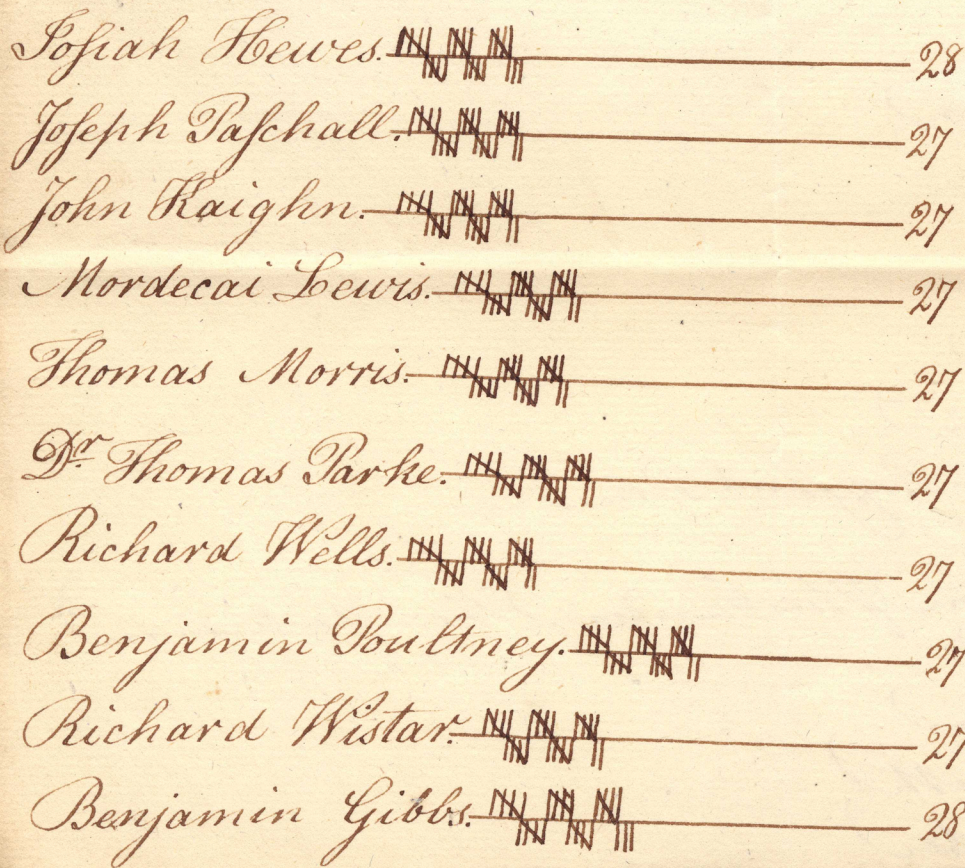 Joſiah Hewes. 28
Joſeph Paſchall. 27
John Kaighn. 27
Mordecai Lewis. 27
Thomas Morris. 27
Dr. Thomas Parke. 27
Richard Wells. 27
Benjamin Poultney. 27
Richard Wistar. 27
Benjamin Gibbs. 28